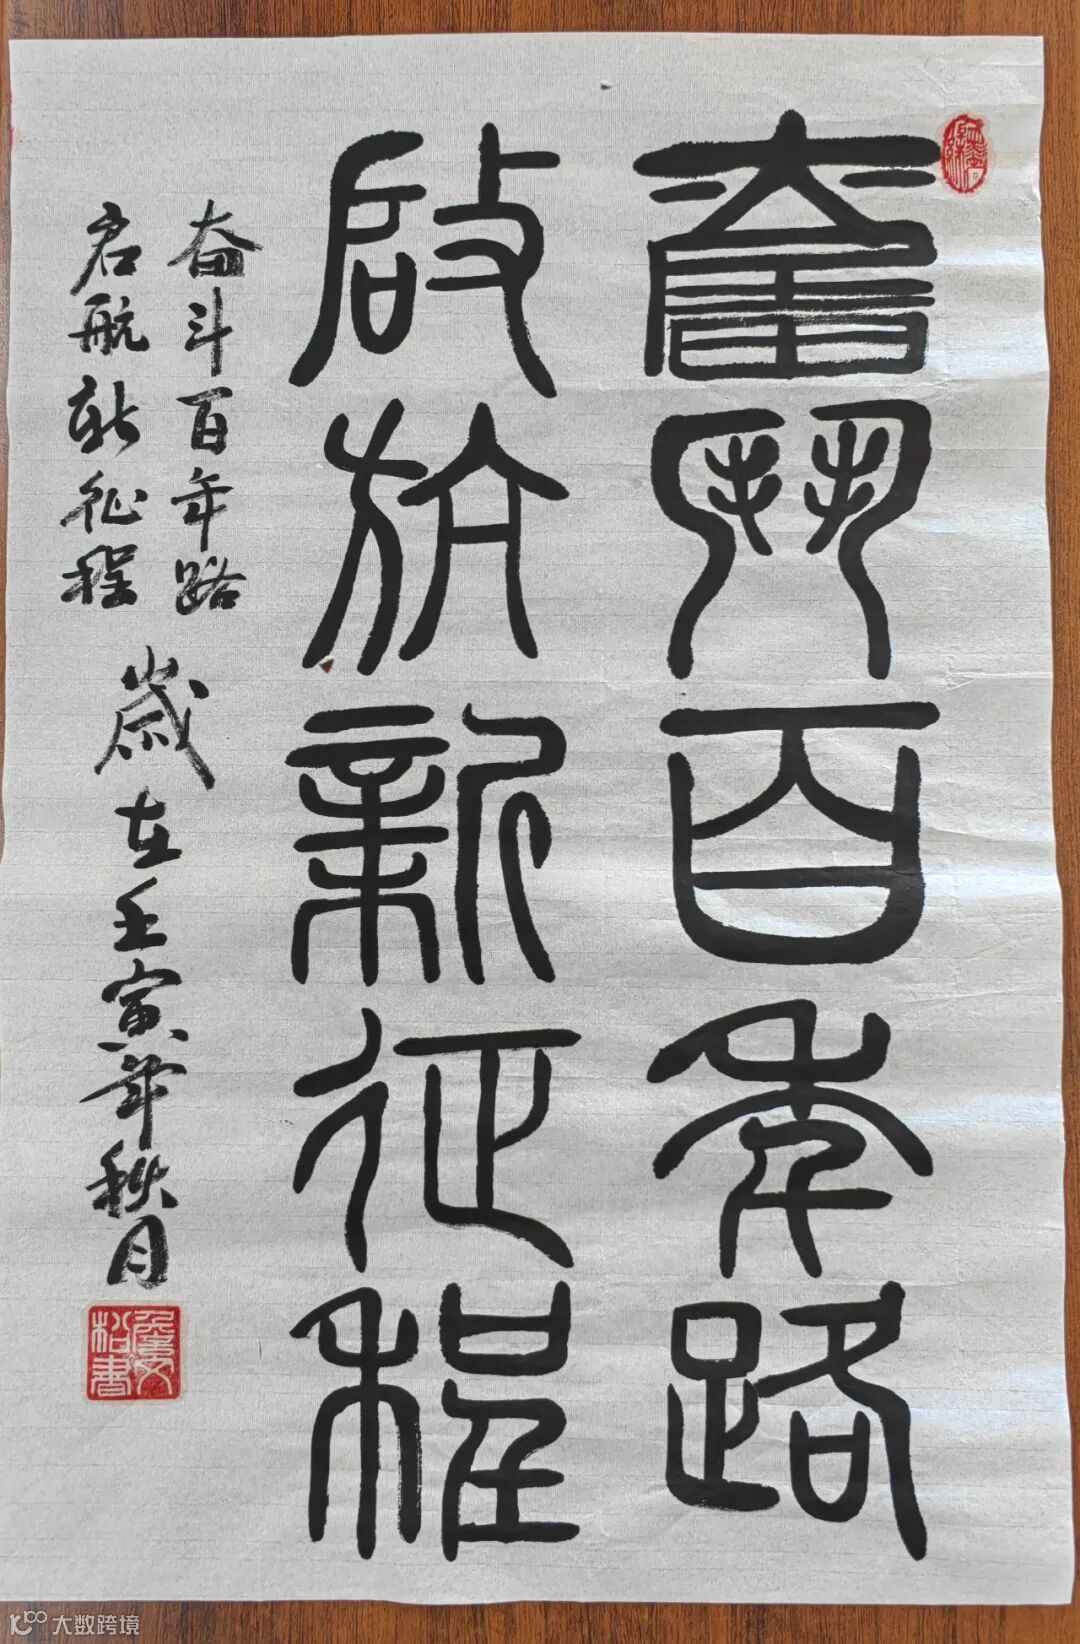 奮鬥百年路
啟航新征程
奋斗百年路
启航新征程
歲在壬寅年秋月
大数跨境